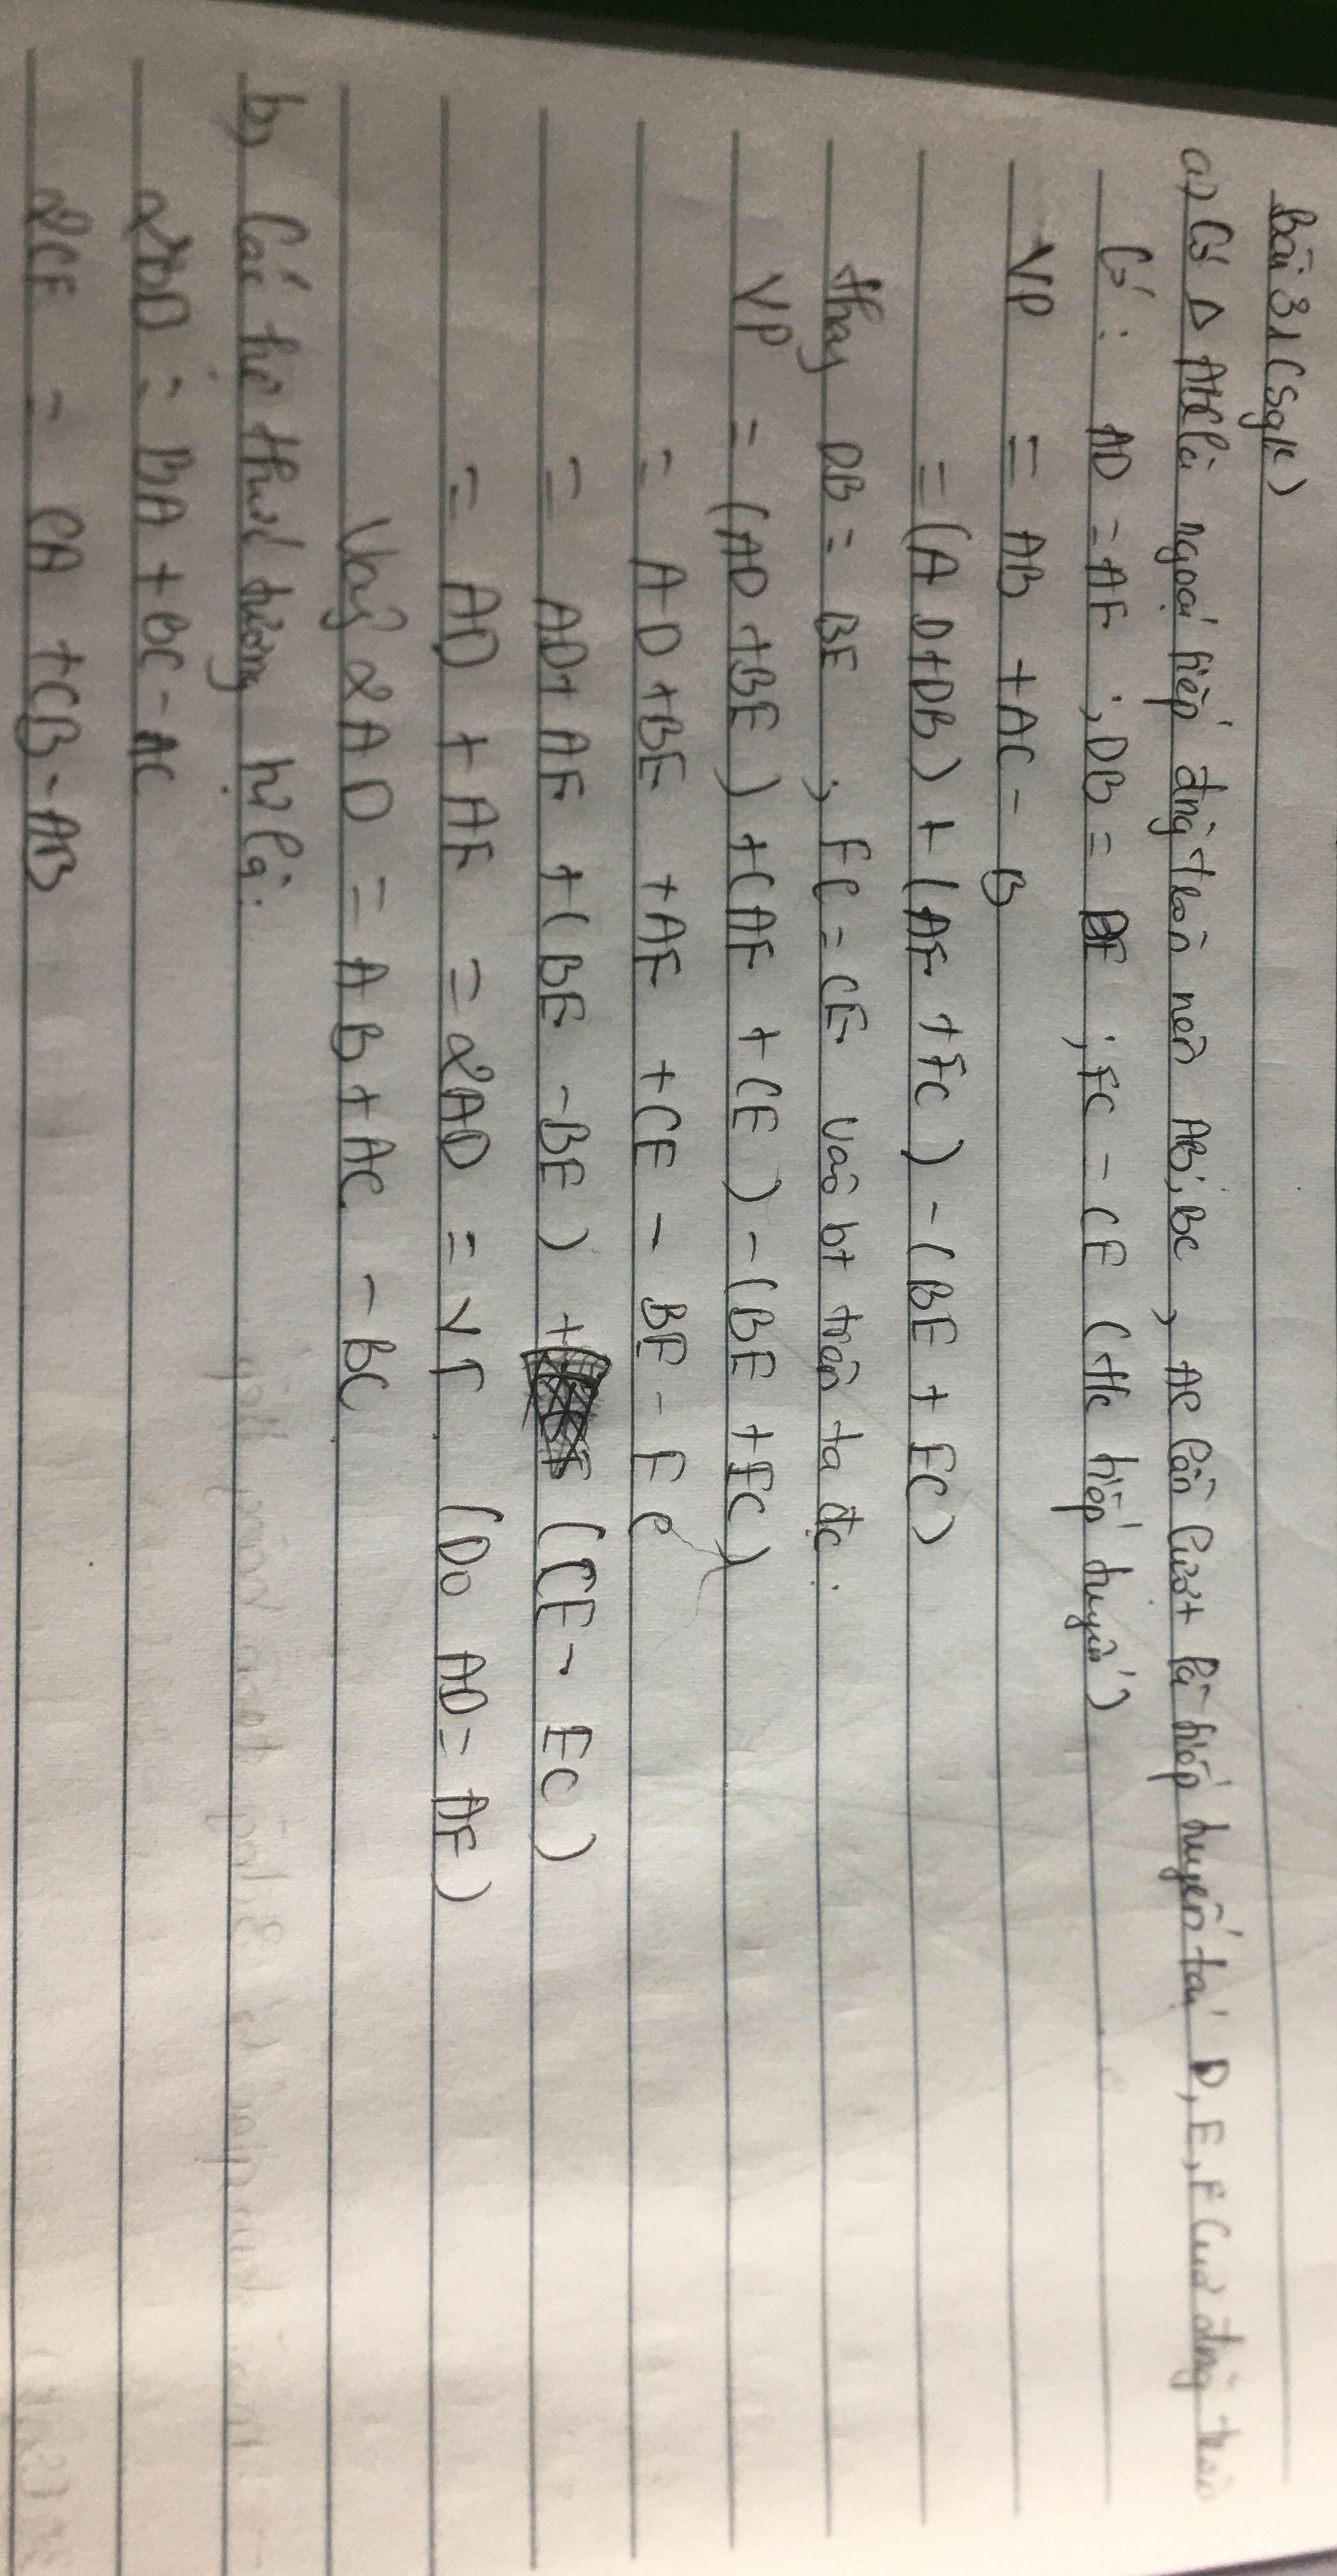 Bài 31 (Sgk)
a) Có Δ ABC là ngoại tiếp đng tròn nên AB; BC, AC lần lượt là tiếp tuyến tại D, E, F của đng tròn
Có: AD = AF ; DB = BE ; FC = CE (t/c tiếp tuyến)
VP = AB + AC - B
= (AD + DB) + (AF + FC) - (BE + EC)
thay DB = BE ; FC = CE vào bt trên ta đc:
VP = (AD + BE) + (AF + CE) - (BE + EC)
= AD + BE + AF + CE - BE - EC
= AD + AF + (BE - BE) + (CE - EC)
= AD + AF = 2AD = VT (Do AD = AF)
Vậy 2AD = AB + AC - BC
b) Các hệ thức tương tự là:
2BD = BA + BC - AC
2CF = CA + CB - AB